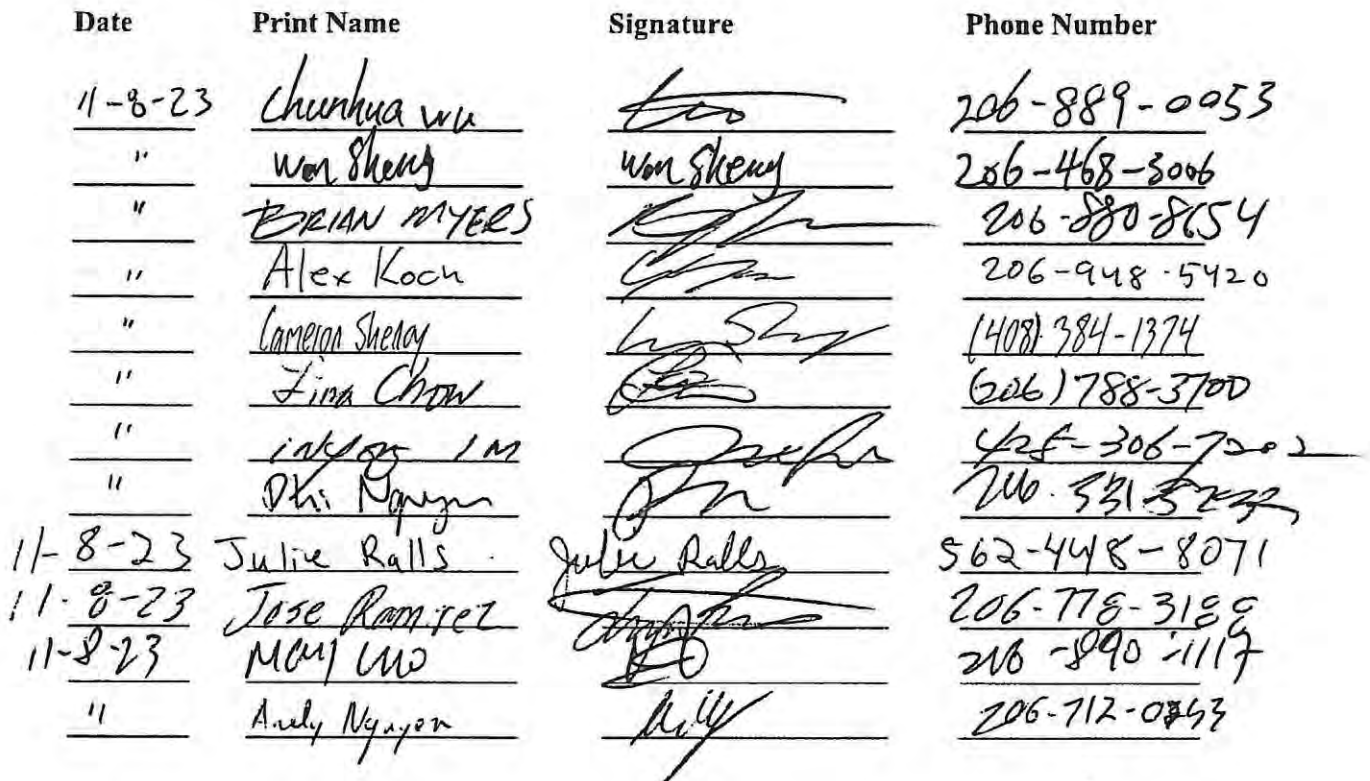 Date Print Name Signature Phone Number
11-8-23 Chunhua wu 206-889-0053
" Wen Sheng Wen Sheng 206-468-3006
" BRIAN MYERS 206-880-8654
" Alex Koch 206-948-5420
" Cameron (408) 384-1374
" Chow (206) 788-3700
" IM 425-306-7202
" Phi Nguyen 206.331
11-8-23 Julie Ralls Julie Ralls 562-448-8071
11-8-23 Jose Ramirez 206-778-3188
11-8-23 206-890-1117
" Andy Nguyen 206-712